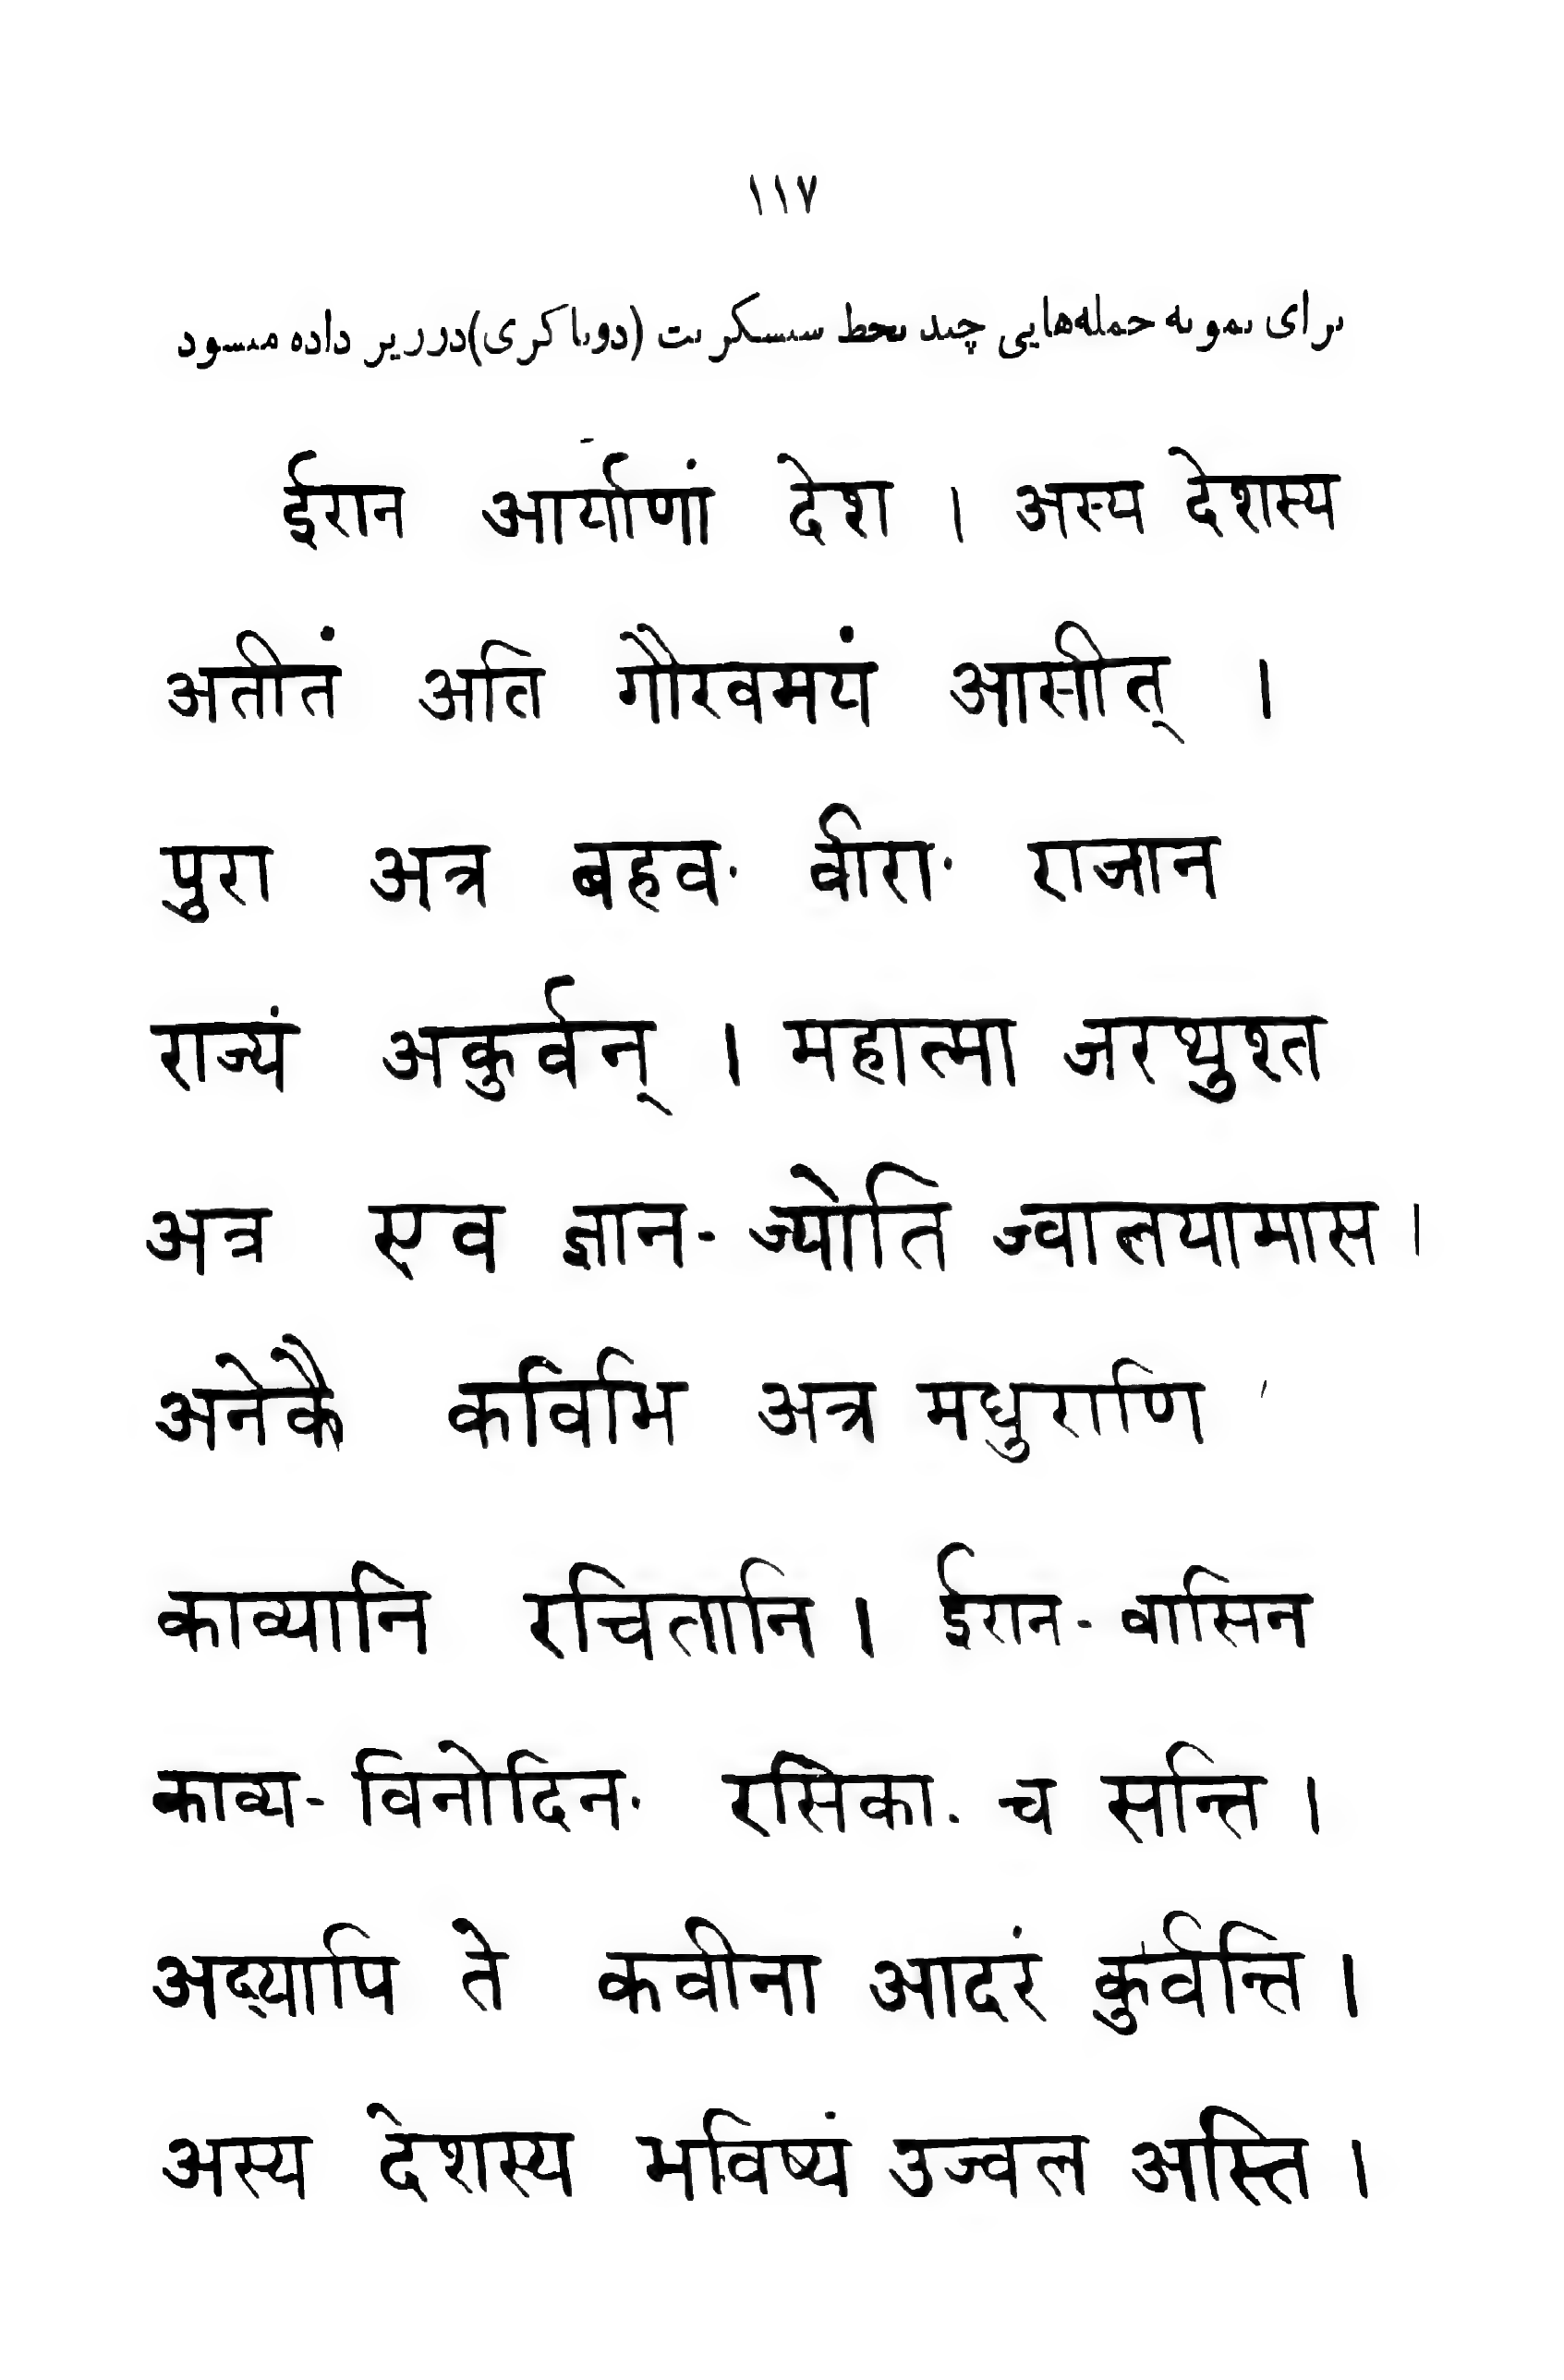 ۱۱۷
برای نمونه جمله‌هایی چند بخط سنسکریت (دوناگری) در زیر داده میشود
ईरान आर्याणां देश । अस्य देशस्य
अतीतं अति गौरवमयं आसीत् ।
पुरा अत्र बहवः वीराः राजान
राज्यं अकुर्वन् । महात्मा जरथुश्त
अत्र एव ज्ञान-ज्योति ज्वालयामास ।
अनेकै कविभि अत्र मधुराणि
काव्यानि रचितानि । ईरान-वासिन
काव्य-विनोदिनः रसिकाः च सन्ति ।
अद्यापि ते कवीना आदरं कुर्वन्ति ।
अस्य देशस्य भविष्यं उज्वल अस्ति ।